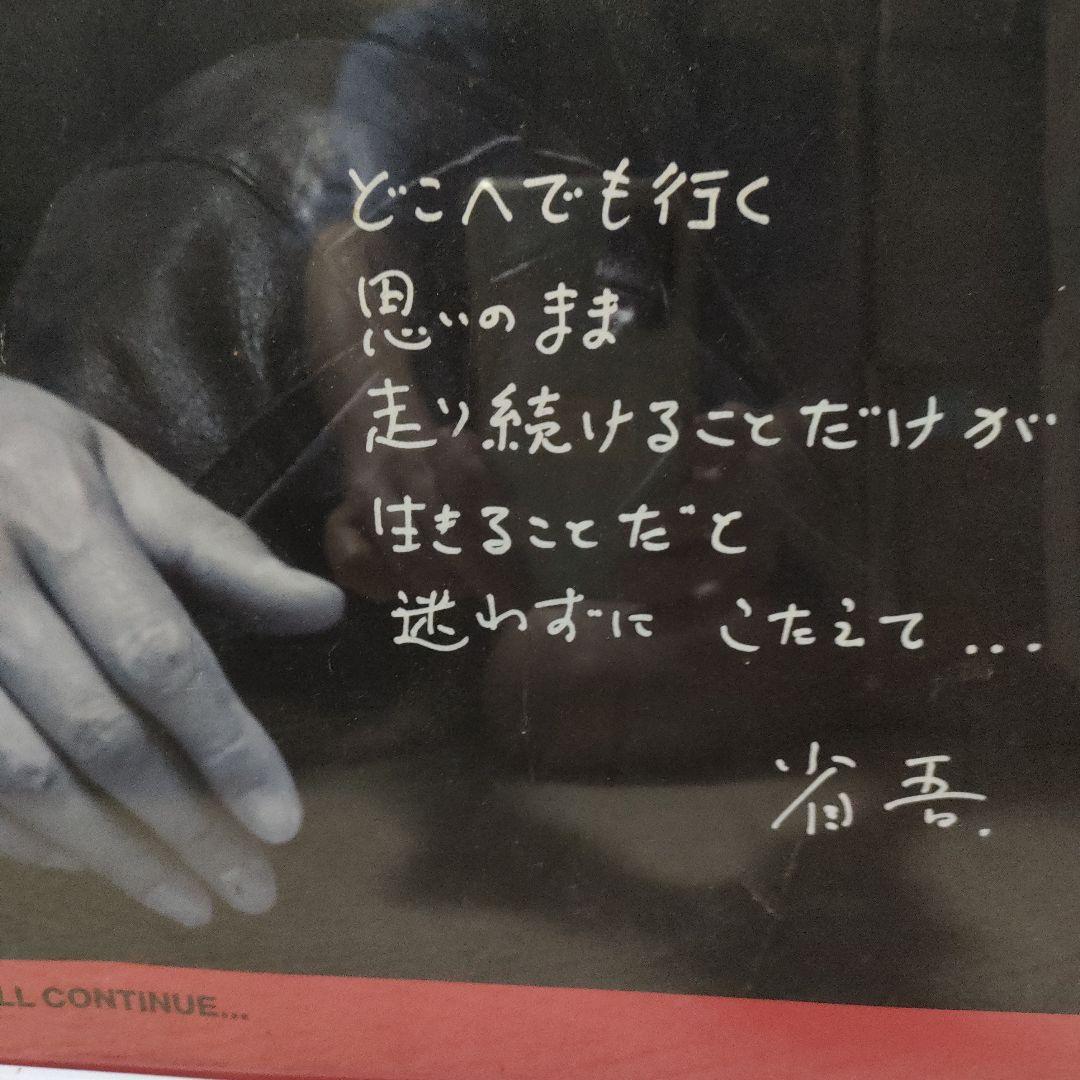 どこへでも行く
思いのまま
走り続けることだけが
生きることだと
迷わずに こたえて...
省吾.
LL CONTINUE...